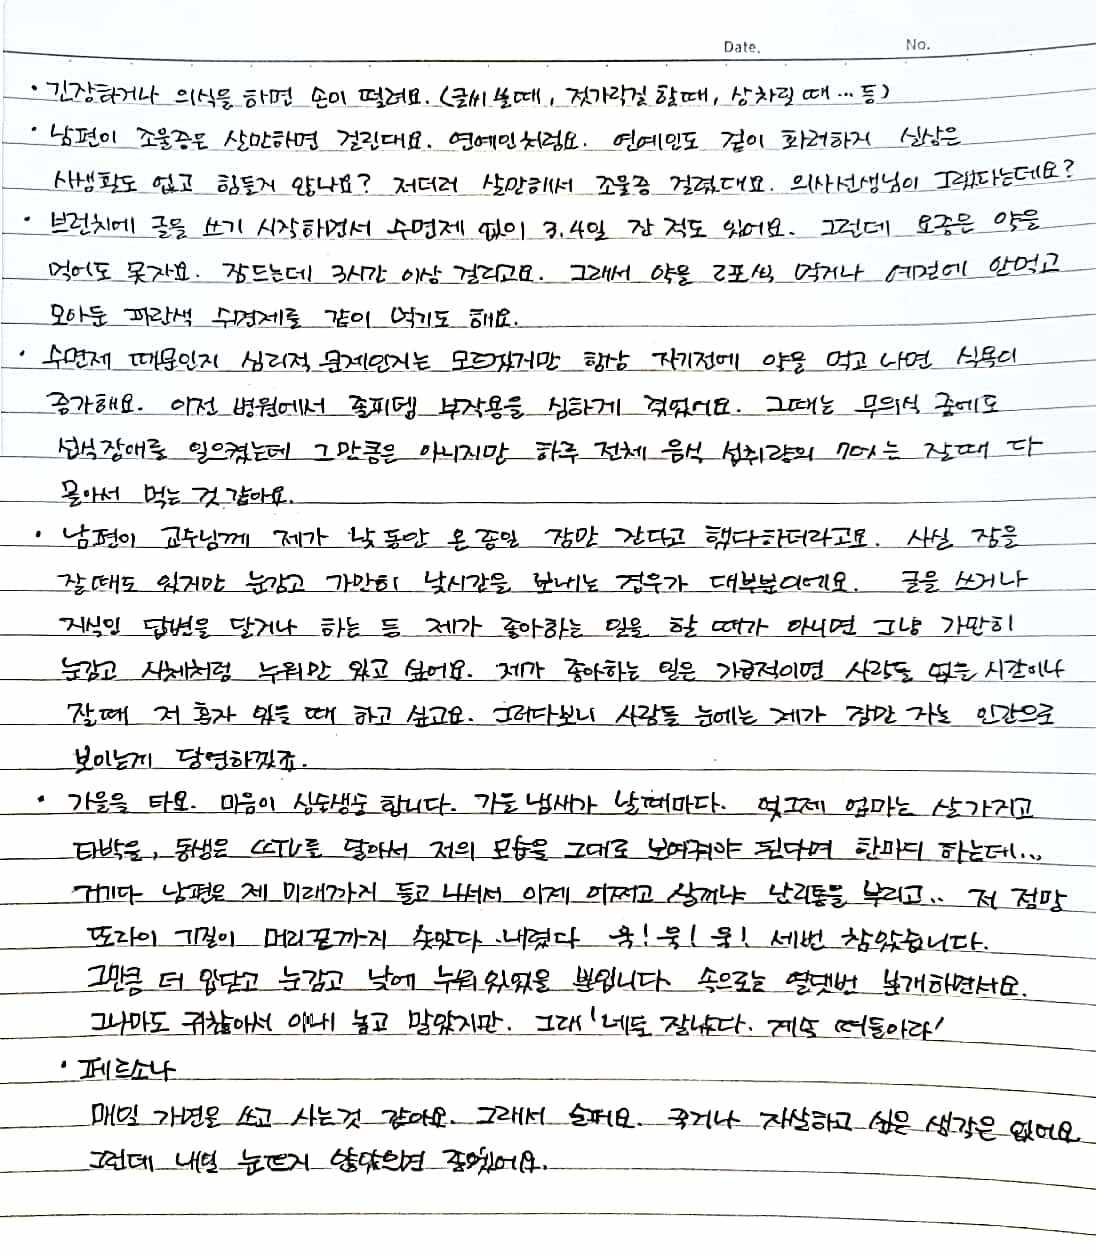 Date.
No.
· 긴장하거나 의식을 하면 손이 떨려요. (글씨 쓸때, 젓가락질 할때, 상차릴 때 … 등)
· 남편이 조울증은 살만하면 걸린대요. 연예인처럼요. 연예인도 겉이 화려하지 실상은
사생활도 없고 힘들지 않나요? 저더러 살만해서 조울증 걸렸대요. 의사선생님이 그랬다는데요?
· 브런치에 글을 쓰기 시작하면서 수면제 없이 3.4일 잔 적도 있어요. 그런데 요즘은 약을
먹어도 못자요. 잠드는데 3시간 이상 걸리고요. 그래서 약을 2포씩 먹거나 예전에 안먹고
모아둔 파란색 수면제를 같이 먹기도 해요.
· 수면제 때문인지 심리적 문제인지는 모르겠지만 항상 자기전에 약을 먹고 나면 식욕이
증가해요. 이전 병원에서 졸피뎀 부작용을 심하게 겪었어요. 그때는 무의식 중에도
섭식장애를 일으켰는데 그만큼은 아니지만 하루 전체 음식 섭취량의 7여는 잘때 다
몰아서 먹는 것 같아요.
· 남편이 교수님께 제가 낮 동안 온종일 잠만 잔다고 했다하더라고요. 사실 잠을
잘때도 있지만 눈감고 가만히 낮시간을 보내는 경우가 대부분이에요. 글을 쓰거나
지식인 답변을 달거나 하는 등 제가 좋아하는 일을 할 때가 아니면 그냥 가만히
눈감고 시체처럼 누워만 있고 싶어요. 제가 좋아하는 일은 가급적이면 사람들 없는 시간이나
잘때 저 혼자 있을 때 하고 싶고요. 그러다보니 사람들 눈에는 제가 잠만 자는 인간으로
보이는게 당연하겠죠.
· 가을을 타요. 마음이 싱숭생숭 합니다. 가을 냄새가 날때마다. 엊그제 엄마는 살가지고
타박을, 동생은 CCTV를 달아서 저의 모습을 그대로 보여줘야 된다며 한마디 하는데...
거기다 남편은 제 미래까지 들고 나서서 이제 어쩌고 살꺼냐 난리통을 부리고.. 저 정말
또라이 기질이 머리끝까지 솟았다 내렸다 욱! 욱! 욱! 세번 참았습니다.
그만큼 더 입닫고 눈감고 낮에 누워 있었을 뿐입니다 속으로는 열댓번 분개하면서요.
그나마도 귀찮아서 이내 놓고 말았지만. 그래 '네들 잘났다. 계속 떠들어라'
· 페르소나
매일 가면을 쓰고 사는것 같아요. 그래서 슬퍼요. 죽거나 자살하고 싶은 생각은 없어요
그런데 내일 눈뜨지 않았으면 좋겠어요.